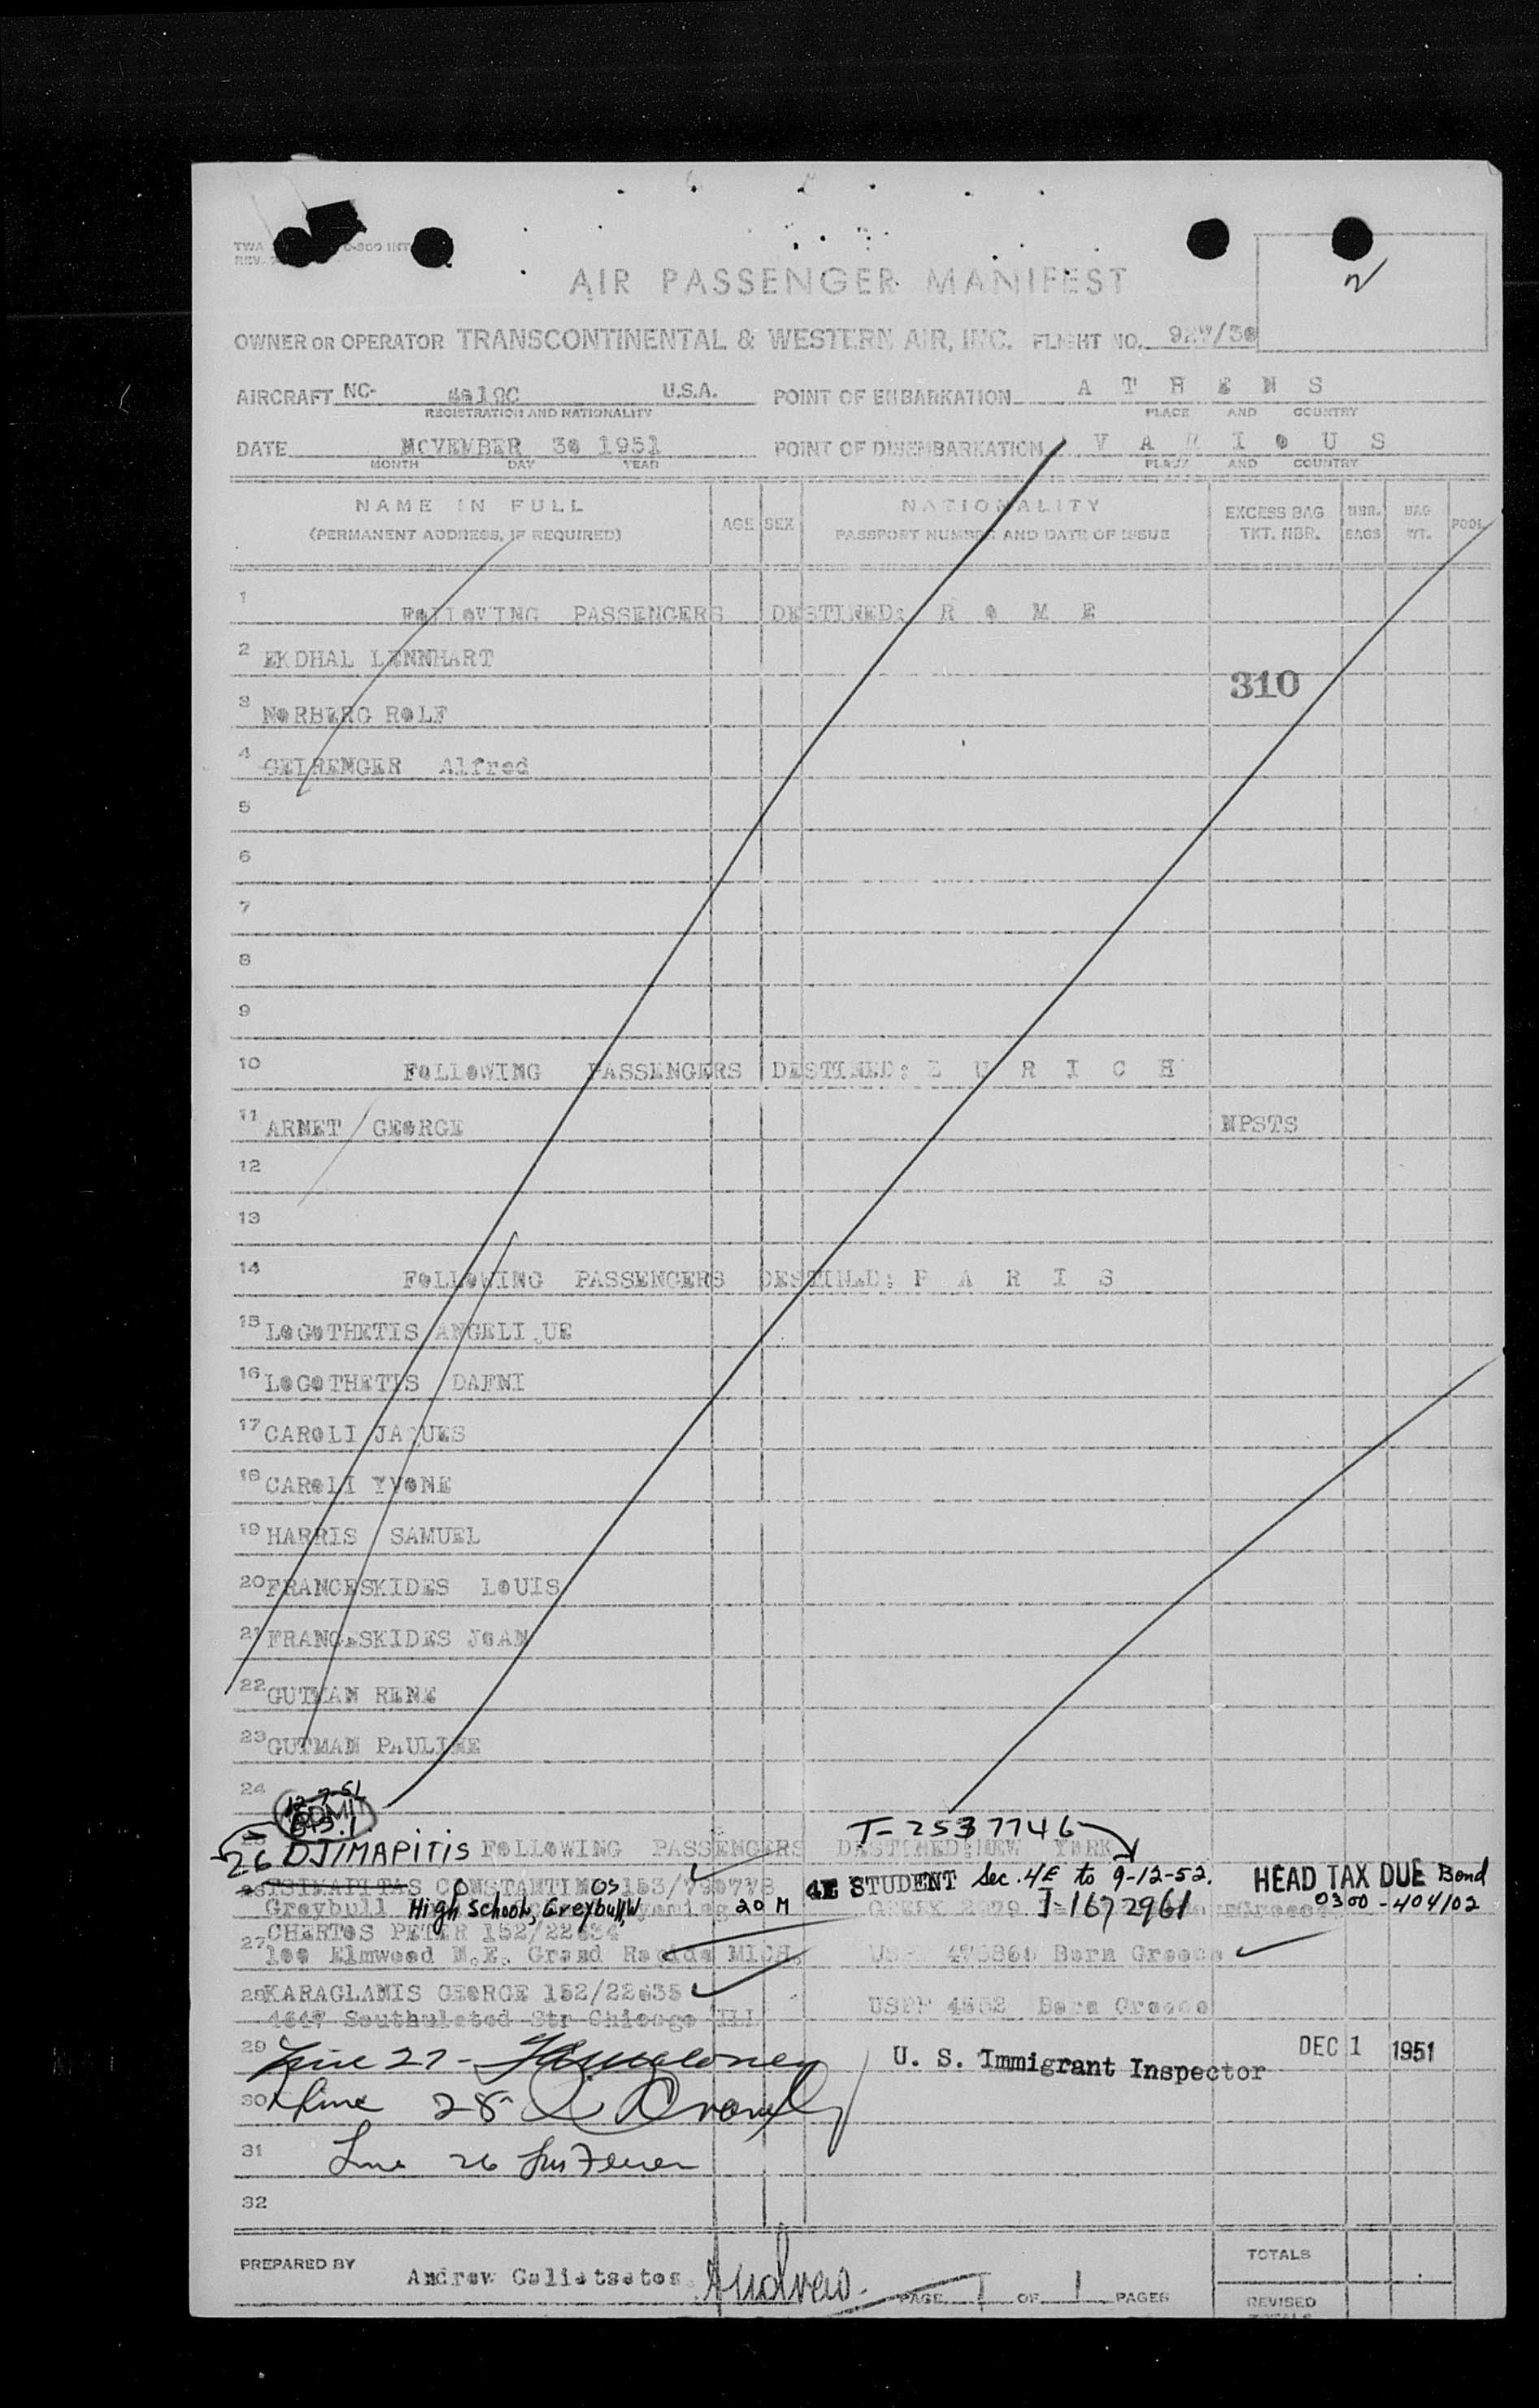 TWA 0-300 INT
REV.
2
AIR PASSENGER MANIFEST
OWNER OR OPERATOR TRANSCONTINENTAL & WESTERN AIR, INC. FLIGHT NO.
AIRCRAFT NC- U.S.A. POINT OF EMBARKATION A T H E N S
REGISTRATION AND NATIONALITY PLACE AND COUNTRY
DATE NOVEMBER 30 1951 POINT OF DISEMBARKATION V A R I O U S
MONTH DAY YEAR PLACE AND COUNTRY
NAME IN FULL AGE SEX NATIONALITY EXCESS BAG NBR. BAG POOL
(PERMANENT ADDRESS, IF REQUIRED) PASSPORT NUMBER AND DATE OF ISSUE TKT. NBR. BAGS WT.
1 FOLLOWING PASSENGERS DESTINED: R O M E
2 EKDHAL LENNHART
310
3 NORBERG ROLF
4 GEIRENGER Alfred
5
6
7
8
9
10 FOLLOWING PASSENGERS DESTINED: Z U R I C H
11 ARNET GEORGE NPSTS
12
13
14 FOLLOWING PASSENGERS DESTINED: P A R I S
15 LOGOTHETIS ANGELI UE
16 LOGOTHETIS DAFNI
17 CAROLI JAQUES
18 CAROLI YVONE
19 HARRIS SAMUEL
20 FRANCESKIDES LOUIS
21 FRANCESKIDES JOAN
22 GUTMAN RENE
23 GUTMAN PAULINE
24
12-7-51
ADMIT
T-2537746
26 DJIMAPITIS FOLLOWING PASSENGERS DESTINED: NEW YORK
TSIMAPITAS CONSTANTINOS 153/790778 4E STUDENT Sec. 4E to 9-12-52. HEAD TAX DUE Bond
Greybull High School, Greybull, W 20 M GREEK 2079 I-1672961 0300-404102
CHARTOS PETER 152/22634
27 100 Elmwood N.E. Grand Rapids MICH. Born Greece
28 KARAGLANIS GEORGE 152/22635
Chicago ILL USPP 4552 Born Greece
29 Line 27 - U. S. Immigrant Inspector DEC 1 1951
30 Line 28
31 Line 26
32
PREPARED BY Andrew Galiatsatos Andrew TOTALS
PAGE 1 OF 1 PAGES REVISED
TOTALS